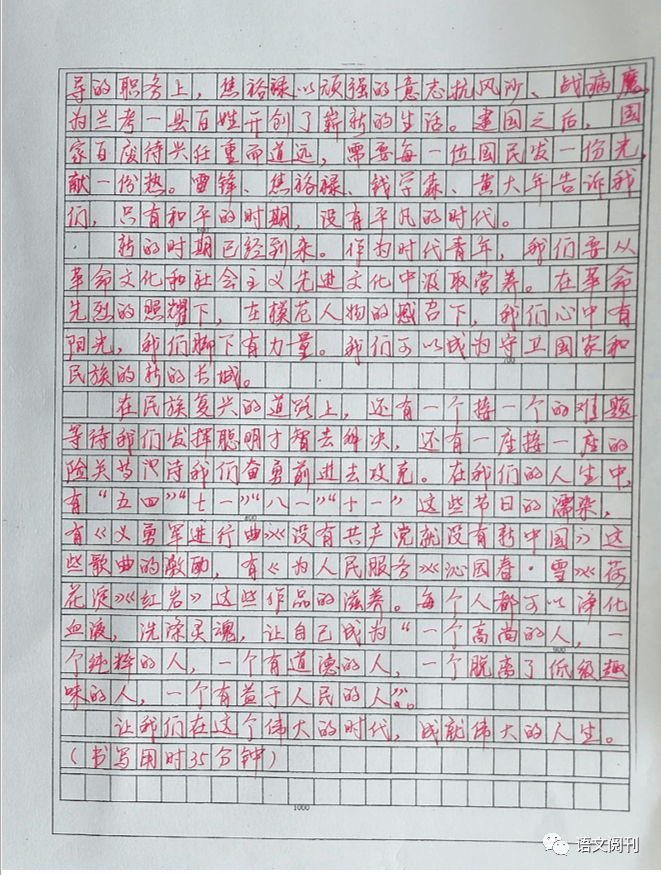 导的职务上，焦裕禄以顽强的意志抗风沙、战病魔，
为兰考一县百姓开创了崭新的生活。建国之后，国
家百废待兴任重而道远，需要每一位国民发一份光，
献一份热。雷锋、焦裕禄、钱学森、黄大年告诉我
们，只有和平的时期，没有平凡的时代。
新的时期已经到来。作为时代青年，我们要从
革命文化和社会主义先进文化中汲取营养。在革命
先烈的照耀下，在模范人物的感召下，我们心中有
阳光，我们脚下有力量。我们可以成为守卫国家和
700
民族的新的长城。
在民族复兴的道路上，还有一个接一个的难题
等待我们发挥聪明才智去解决，还有一座接一座的
险关等待我们奋勇前进去攻克。在我们的人生中，
有“五四”“七一”“八一”“十一”这些节日的濡染，
800
有《义勇军进行曲》《没有共产党就没有新中国》这
些歌曲的激励，有《为人民服务》《沁园春·雪》《荷
花淀》《红岩》这些作品的滋养。每个人都可以净化
血液，洗涤灵魂，让自己成为“一个高尚的人，一
900
个纯粹的人，一个有道德的人，一个脱离了低级趣
味的人，一个有益于人民的人”。
让我们在这个伟大的时代，成就伟大的人生。
（书写用时35分钟）
1000
语文阅刊